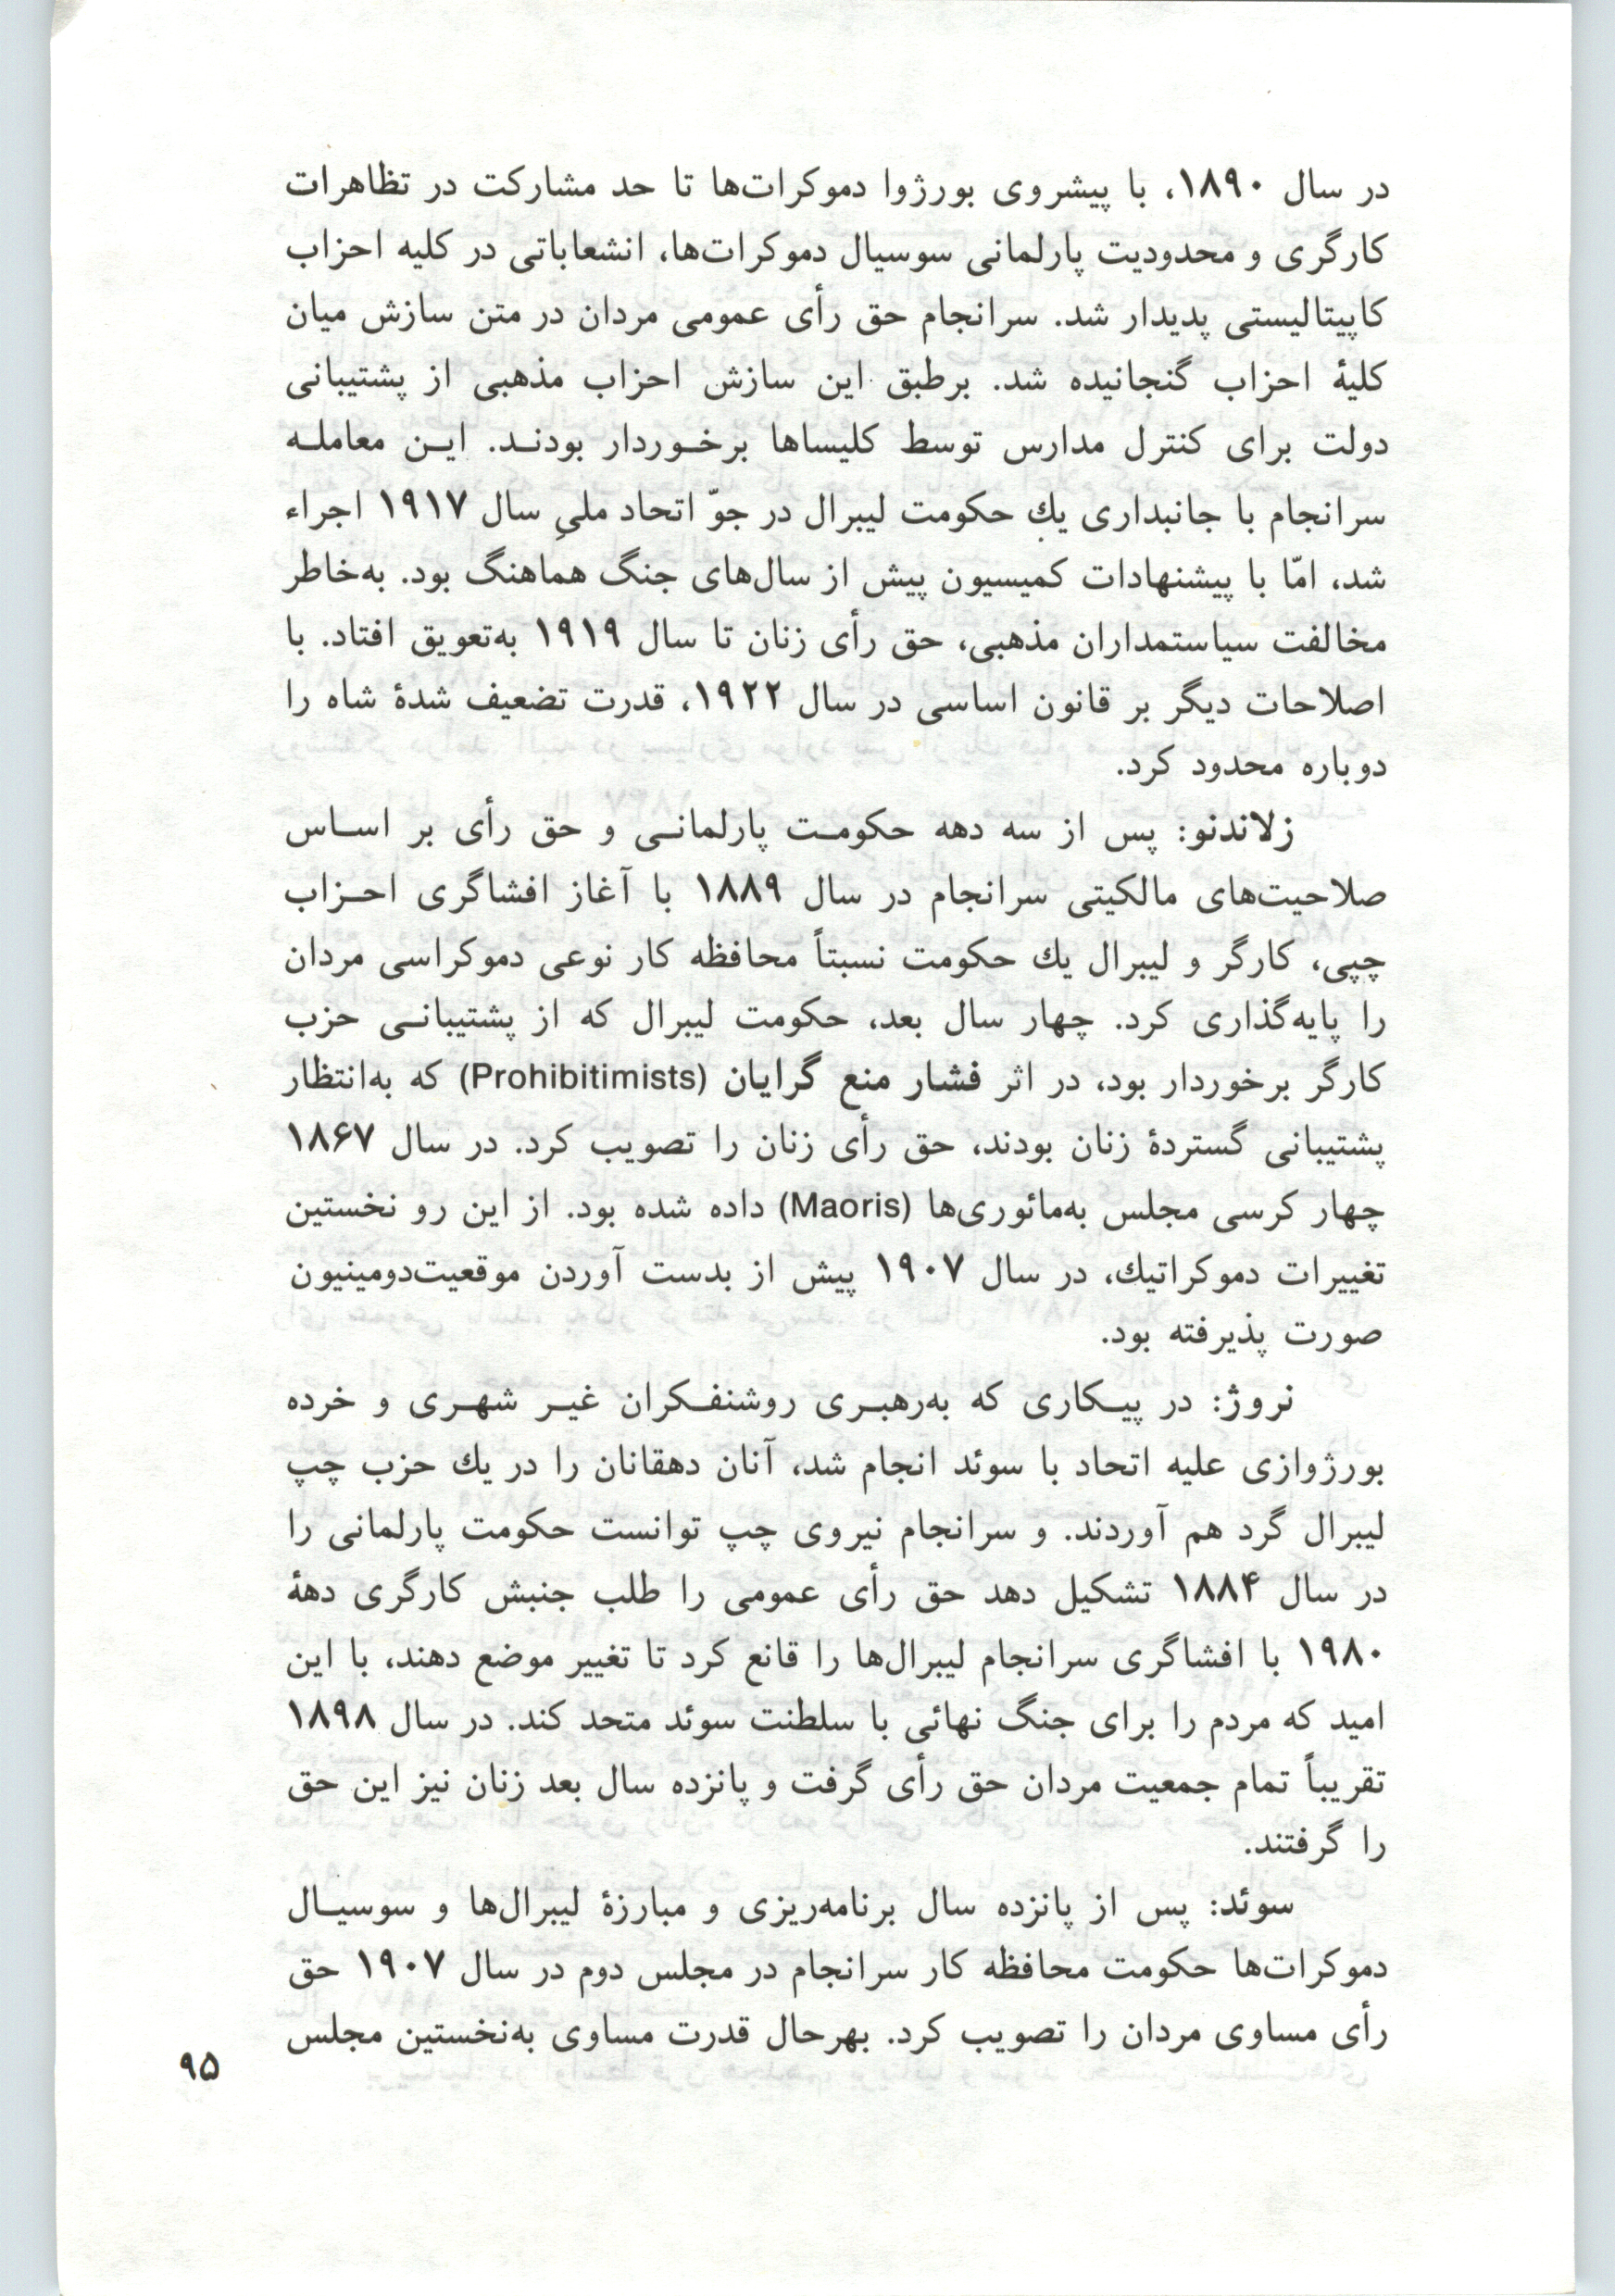 در سال ۱۸۹۰، با پیشروی بورژوا دموکرات‌ها تا حد مشارکت در تظاهرات
کارگری و محدودیت پارلمانی سوسیال دموکرات‌ها، انشعاباتی در کلیه احزاب
کاپیتالیستی پدیدار شد. سرانجام حق رأی عمومی مردان در متن سازش میان
کلیهٔ احزاب گنجانیده شد. برطبق این سازش احزاب مذهبی از پشتیبانی
دولت برای کنترل مدارس توسط کلیساها برخـوردار بودنـد. ایـن معاملـه
سرانجام با جانبداری یك حکومت لیبرال در جوّ اتحاد ملیِ سال ۱۹۱۷ اجراء
شد، امّا با پیشنهادات کمیسیون پیش از سال‌های جنگ هماهنگ بود. به‌خاطر
مخالفت سیاستمداران مذهبی، حق رأی زنان تا سال ۱۹۱۹ به‌تعویق افتاد. با
اصلاحات دیگر بر قانون اساسی در سال ۱۹۲۲، قدرت تضعیف شدهٔ شاه را
دوباره محدود کرد.
زلاندنو: پس از سه دهه حکومـت پارلمانـی و حق رأی بر اسـاس
صلاحیت‌های مالکیتی سرانجام در سال ۱۸۸۹ با آغاز افشاگری احـزاب
چپی، کارگر و لیبرال یك حکومت نسبتاً محافظه کار نوعی دموکراسی مردان
را پایه‌گذاری کرد. چهار سال بعد، حکومت لیبرال که از پشتیبانـی حزب
کارگر برخوردار بود، در اثر فشار منع گرایان (Prohibitimists) که به‌انتظار
پشتیبانی گستردهٔ زنان بودند، حق رأی زنان را تصویب کرد. در سال ۱۸۶۷
چهار کرسی مجلس به‌مائوری‌ها (Maoris) داده شده بود. از این رو نخستین
تغییرات دموکراتیك، در سال ۱۹۰۷ پیش از بدست آوردن موقعیت‌دومینیون
صورت پذیرفته بود.
نروژ: در پیـکاری که به‌رهبـری روشنفـکران غیـر شهـری و خرده
بورژوازی علیه اتحاد با سوئد انجام شد، آنان دهقانان را در یك حزب چپ
لیبرال گرد هم آوردند. و سرانجام نیروی چپ توانست حکومت پارلمانی را
در سال ۱۸۸۴ تشکیل دهد حق رأی عمومی را طلب جنبش کارگری دههٔ
۱۹۸۰ با افشاگری سرانجام لیبرال‌ها را قانع کرد تا تغییر موضع دهند، با این
امید که مردم را برای جنگ نهائی با سلطنت سوئد متحد کند. در سال ۱۸۹۸
تقریباً تمام جمعیت مردان حق رأی گرفت و پانزده سال بعد زنان نیز این حق
را گرفتند.
سوئد: پس از پانزده سال برنامه‌ریزی و مبارزهٔ لیبرال‌ها و سوسیـال
دموکرات‌ها حکومت محافظه کار سرانجام در مجلس دوم در سال ۱۹۰۷ حق
رأی مساوی مردان را تصویب کرد. بهرحال قدرت مساوی به‌نخستین مجلس
۹۵